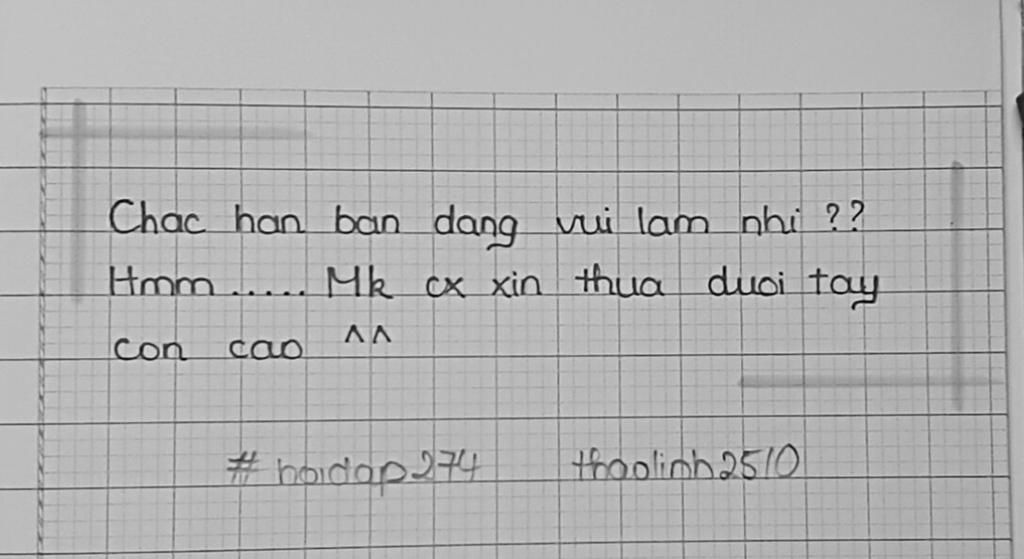 Chac han ban dang vui lam nhi ??
Hmm ..... Mk cx xin thua duoi tay
con cao ^^
# hoidap274 thaolinh2510